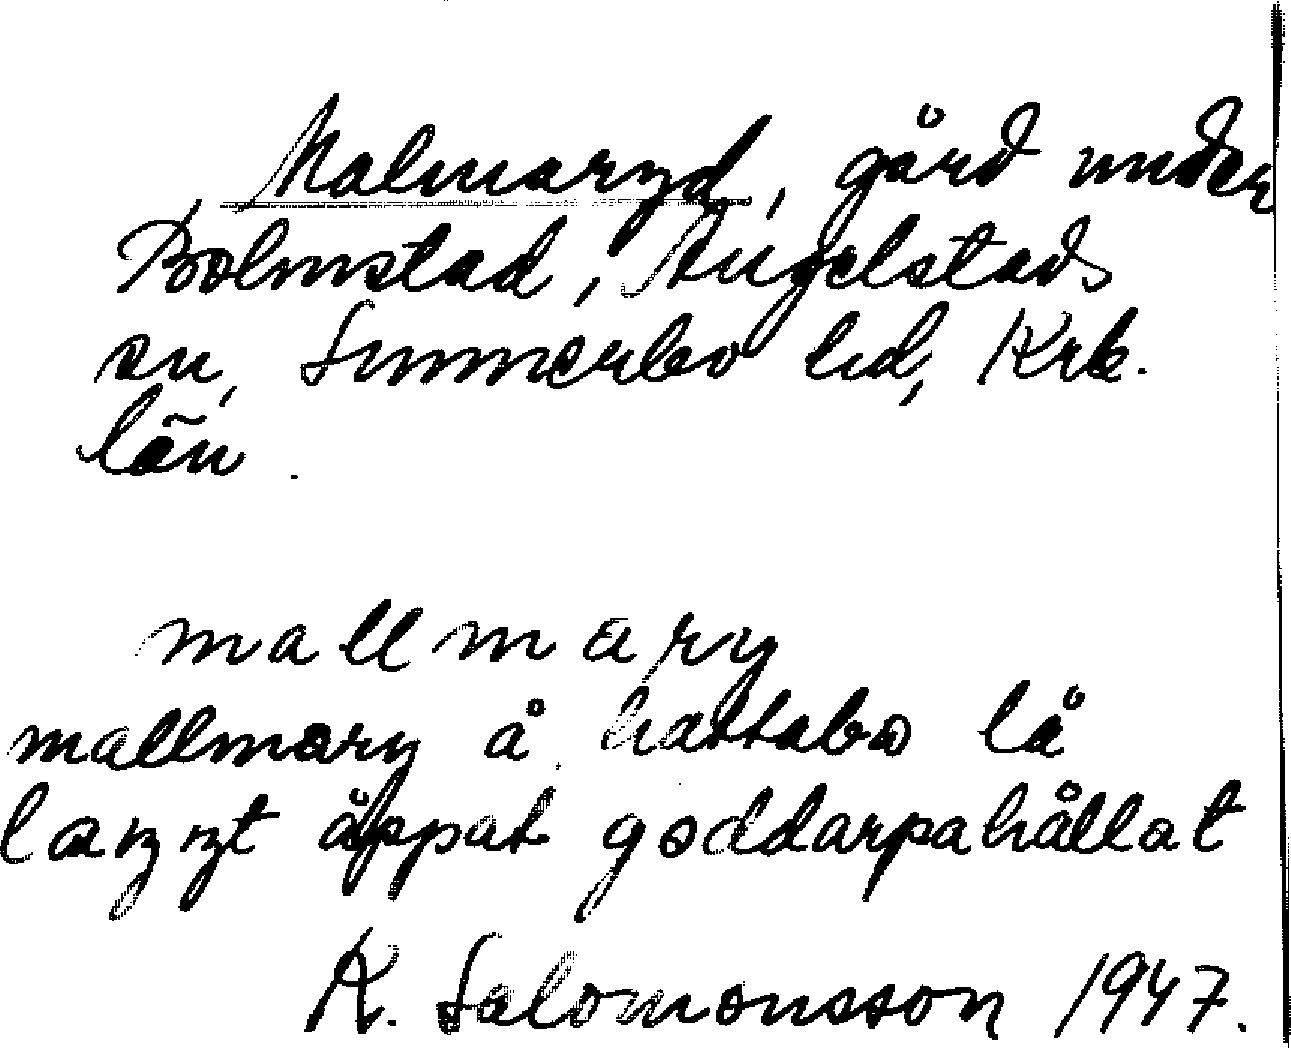 Malmaryd, gård under
Bolmstad, Angelstads
sn, Sunnerbo hd, Krb.
län.
mallmary
mallmary å hattabo lå
åppat goddarpahållat
K. Salomonsson 1947.